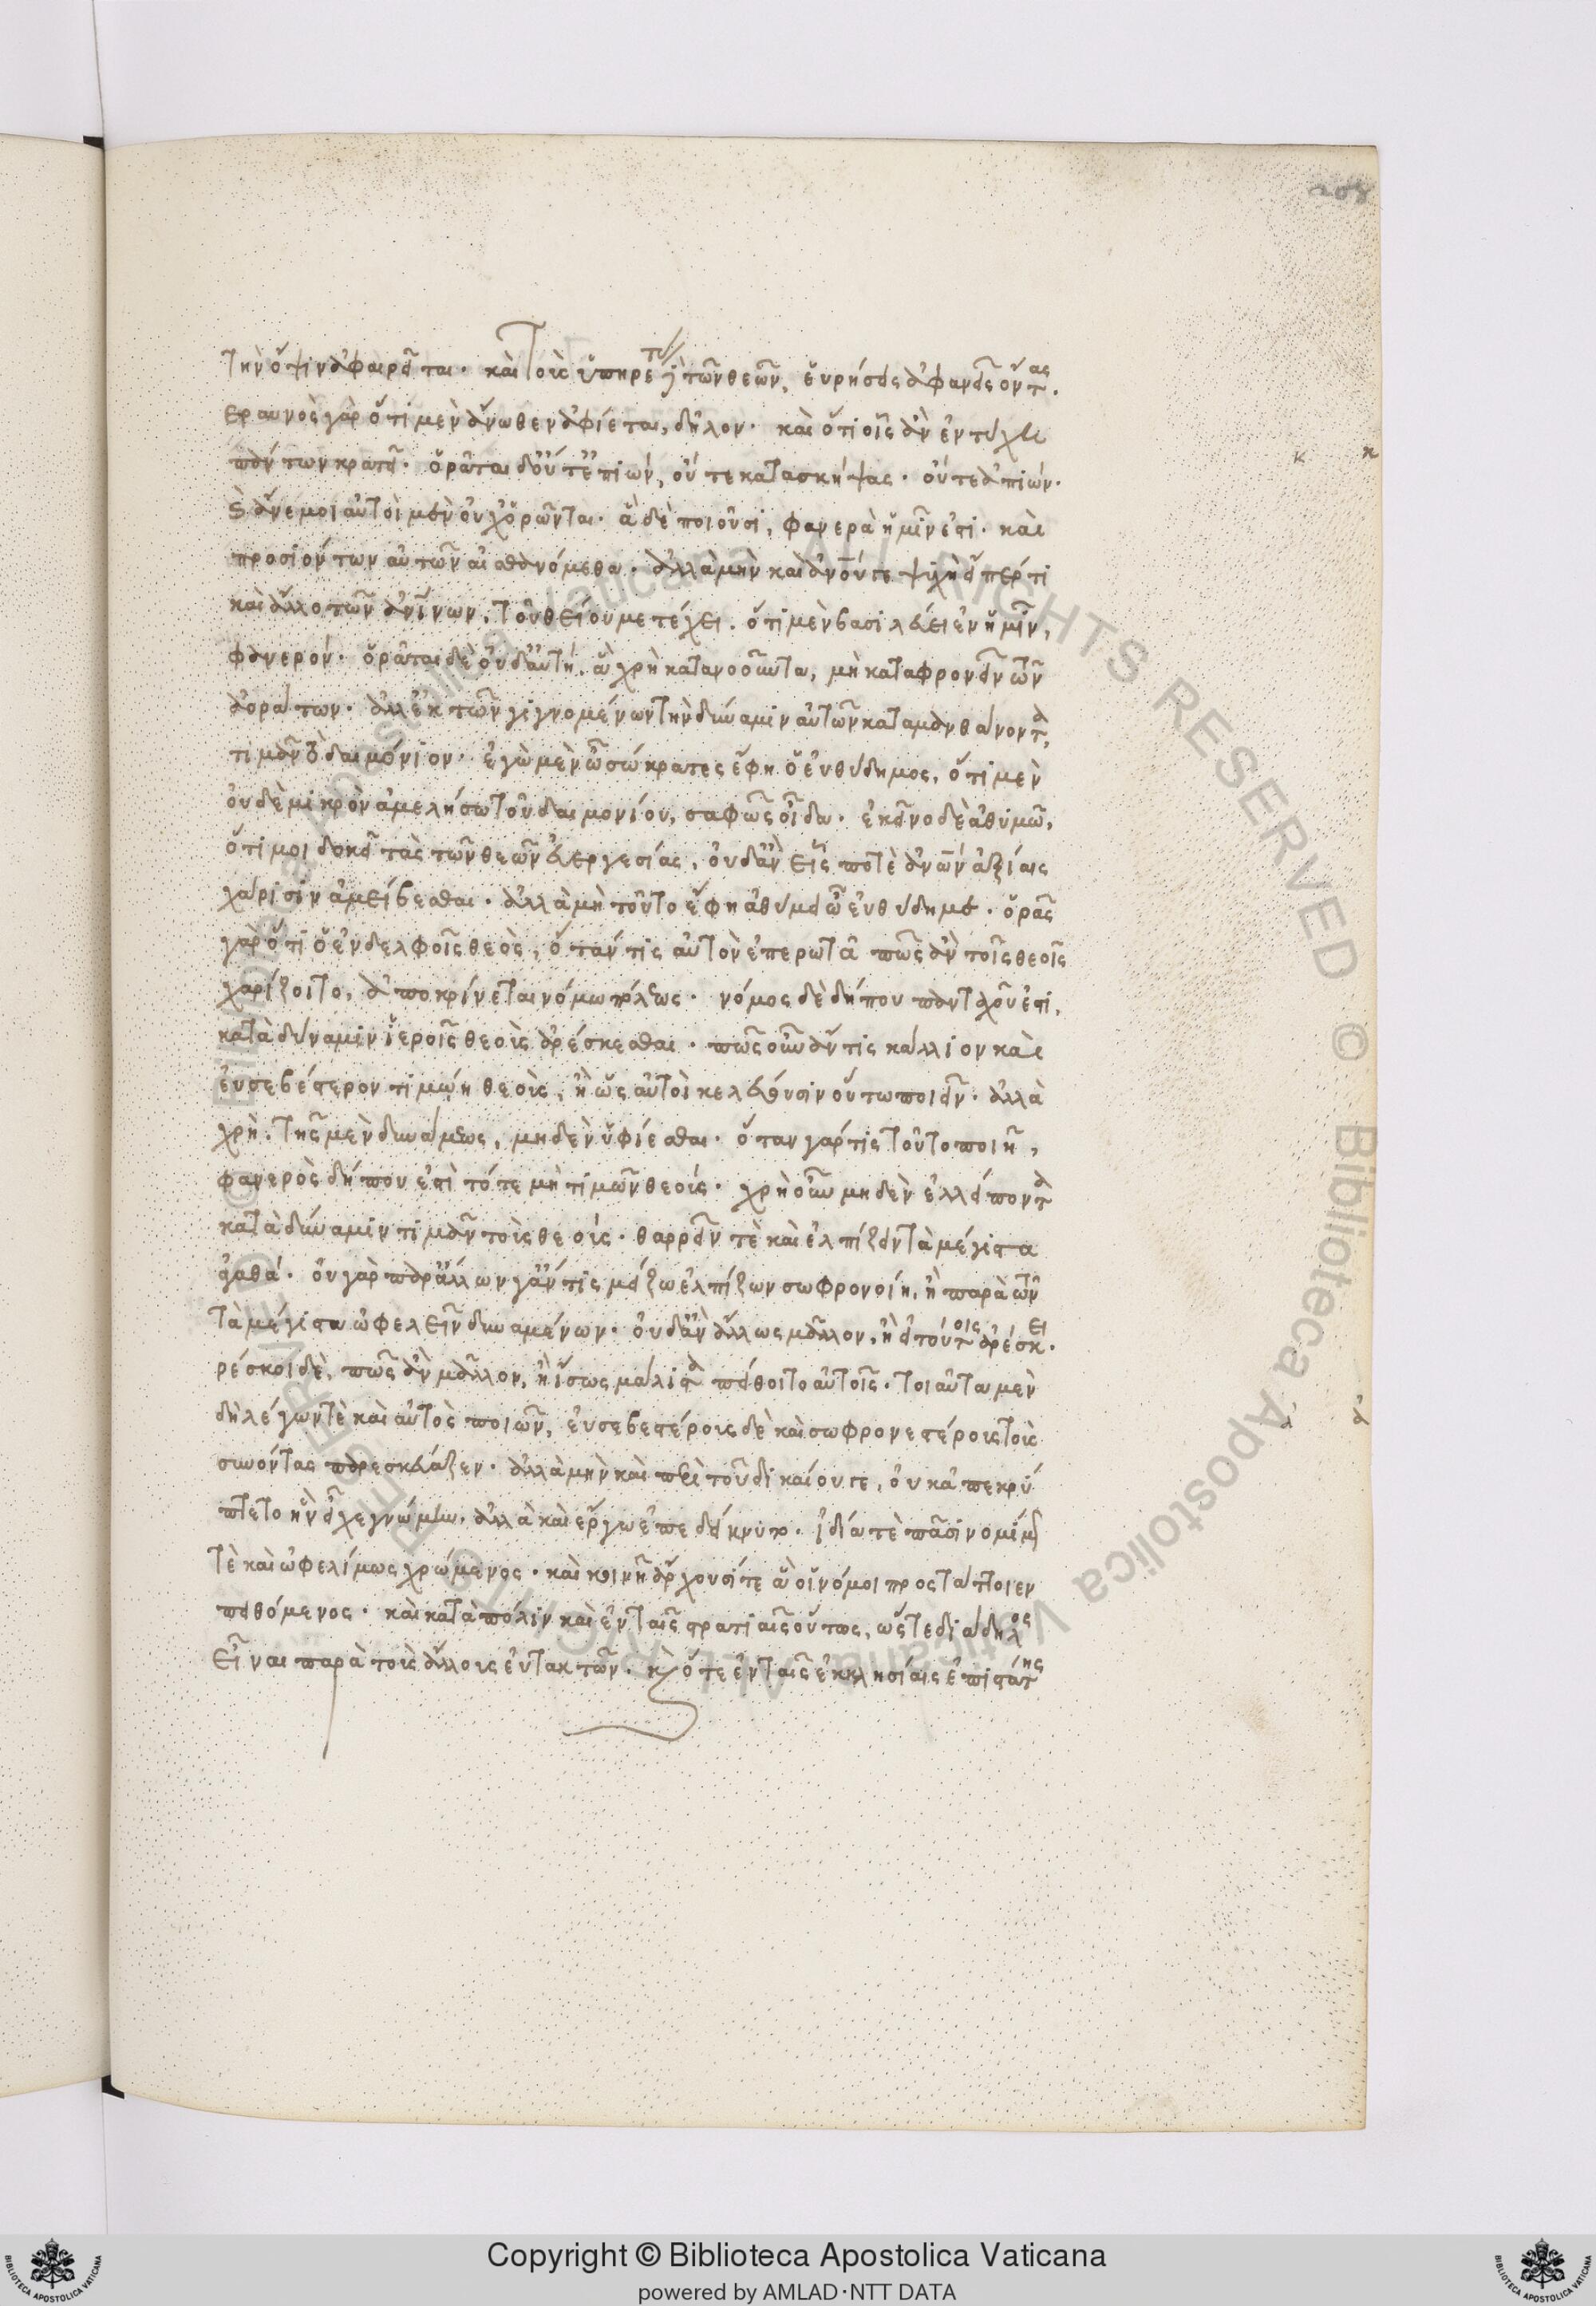 208
τὴν ὄψιν ἀφαιρεῖται. καὶ τοὺς ὑπηρέτ δὲ τῶν θεῶν, εὑρήσεις ἀφανεῖς ὄντας.
εραυνὸς γὰρ ὅτι μὲν ἄνωθεν ἀφίεται, δῆλον. καὶ ὅτι οἷς ἂν ἐντύχη
πάντων κρατεῖ. ὁρᾶται δ' οὔτ' ἐπιών, οὔτε κατασκήψας. οὔτε ἀπιών.
καὶ ἄνεμοι αὐτοὶ μὲν οὐχ ὁρῶνται. ἃ δὲ ποιοῦσι, φανερὰ ἡμῖν ἐστι. καὶ
προσιόντων αὐτῶν αἰσθανόμεθα. ἀλλὰ μὴν καὶ ἀνοῦ γε ψυχὴ εἴπερ τι
καὶ ἄλλο τῶν ἀνίνων, τοῦ θείου μετέχει. ὅτι μὲν βασιλεύει ἐν ἡμῖν,
φανερόν. ὁρᾶται δὲ οὐδ' αὐτή. ἃ χρὴ κατανοοῦντα, μὴ καταφρονεῖν τῶν
ἀοράτων. ἀλλ' ἐκ τῶν γιγνομένων τὴν δύναμιν αὐτῶν καταμανθάνοντα,
τιμᾶν τὸ δαιμόνιον. ἐγὼ μὲν ὦ σώκρατες ἔφη ὁ εὐθύδημος, ὅτι μὲν
οὐδὲ μικρὸν ἀμελήσω τοῦ δαιμονίου, σαφῶς οἶδα. ἐκεῖνο δὲ ἀθυμῶ,
ὅτι μοι δοκεῖ τὰς τῶν θεῶν εὐεργεσίας, οὐδ' ἂν εἷς ποτὲ ἀνων ἀξίαις
χάρισιν ἀμείβεσθαι. ἀλλὰ μὴ τοῦτο ἔφη ἀθύμει ὦ εὐθύδημε. ὁρᾷς
γὰρ ὅτι ὁ ἐν δελφοῖς θεὸς, ὅταν τις αὐτὸν ἐπερωτᾷ πῶς ἂν τοῖς θεοῖς
χαρίζοιτο, ἀποκρίνεται νόμω πόλεως. νόμος δὲ δήπου πανταχοῦ ἐστι,
κατὰ δύναμιν ἱεροῖς θεοὺς ἀρέσκεσθαι. πῶς οὖν ἄν τις κάλλιον καὶ
εὐσεβέστερον τιμώη θεοὺς, ἢ ὡς αὐτοὶ κελεύουσιν οὕτω ποιεῖν. ἀλλὰ
χρὴ. τῆς μὲν δυνάμεως, μηδὲν ὑφίεσθαι. ὅταν γάρ τις τοῦτο ποιῆ,
φανερὸς δήπου ἐστὶ τότε μὴ τιμῶν θεούς. χρὴ οὖν μηδὲν ἐλλείποντα
κατὰ δύναμιν τιμᾶν τοὺς θεούς. θαρρεῖν τὲ καὶ ἐλπίζειν τὰ μέγιστα
ἀγαθά. οὐ γὰρ παρ' ἄλλων γ' ἄν τις μείζω ἐλπίζων σωφρονοίη, ἢ παρὰ τῶν
τὰ μέγιστα ὠφελεῖν δυναμένων. οὐδ' ἂν ἄλλως μᾶλλον, ἢ εἰ τούτοις ἀρέσκει.
ρέσκοι δὲ, πῶς ἂν μᾶλλον, ἢ ἴσως μάλιστα πείθοιτο αὐτοῖς. τοιαῦτα μὲν
δὴ λέγων τὲ καὶ αὐτὸς ποιῶν, εὐσεβεστέρους δὲ καὶ σωφρονεστέρους τοὺς
συνόντας παρεσκεύαζεν. ἀλλὰ μὴν καὶ περὶ τοῦ δικαίου γε, οὐκ ἀπεκρύ
πτετο ἣν εἶχε γνώμην. ἀλλὰ καὶ ἔργω ἐπεδείκνυτο. ἰδία τὲ πᾶσι νομίμως
τὲ καὶ ὠφελίμως χρώμενος. καὶ κοινῆ ἄρχουσί τε ἃ οἱ νόμοι προστάττοιεν
πειθόμενος. καὶ κατὰ πόλιν καὶ ἐν ταῖς στρατιαῖς οὕτως, ὥστε διάδηλος
εἶναι παρὰ τοὺς ἄλλους εὐτακτῶν. καὶ ὅτε ἐν ταῖς ἐκκλησίαις ἐπιστάτης